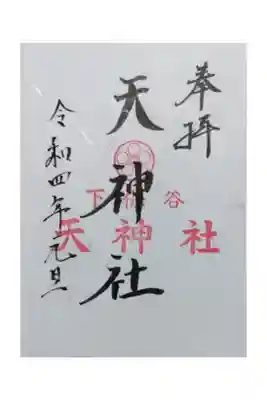 奉拝
天神社
天神社
令和四年元旦